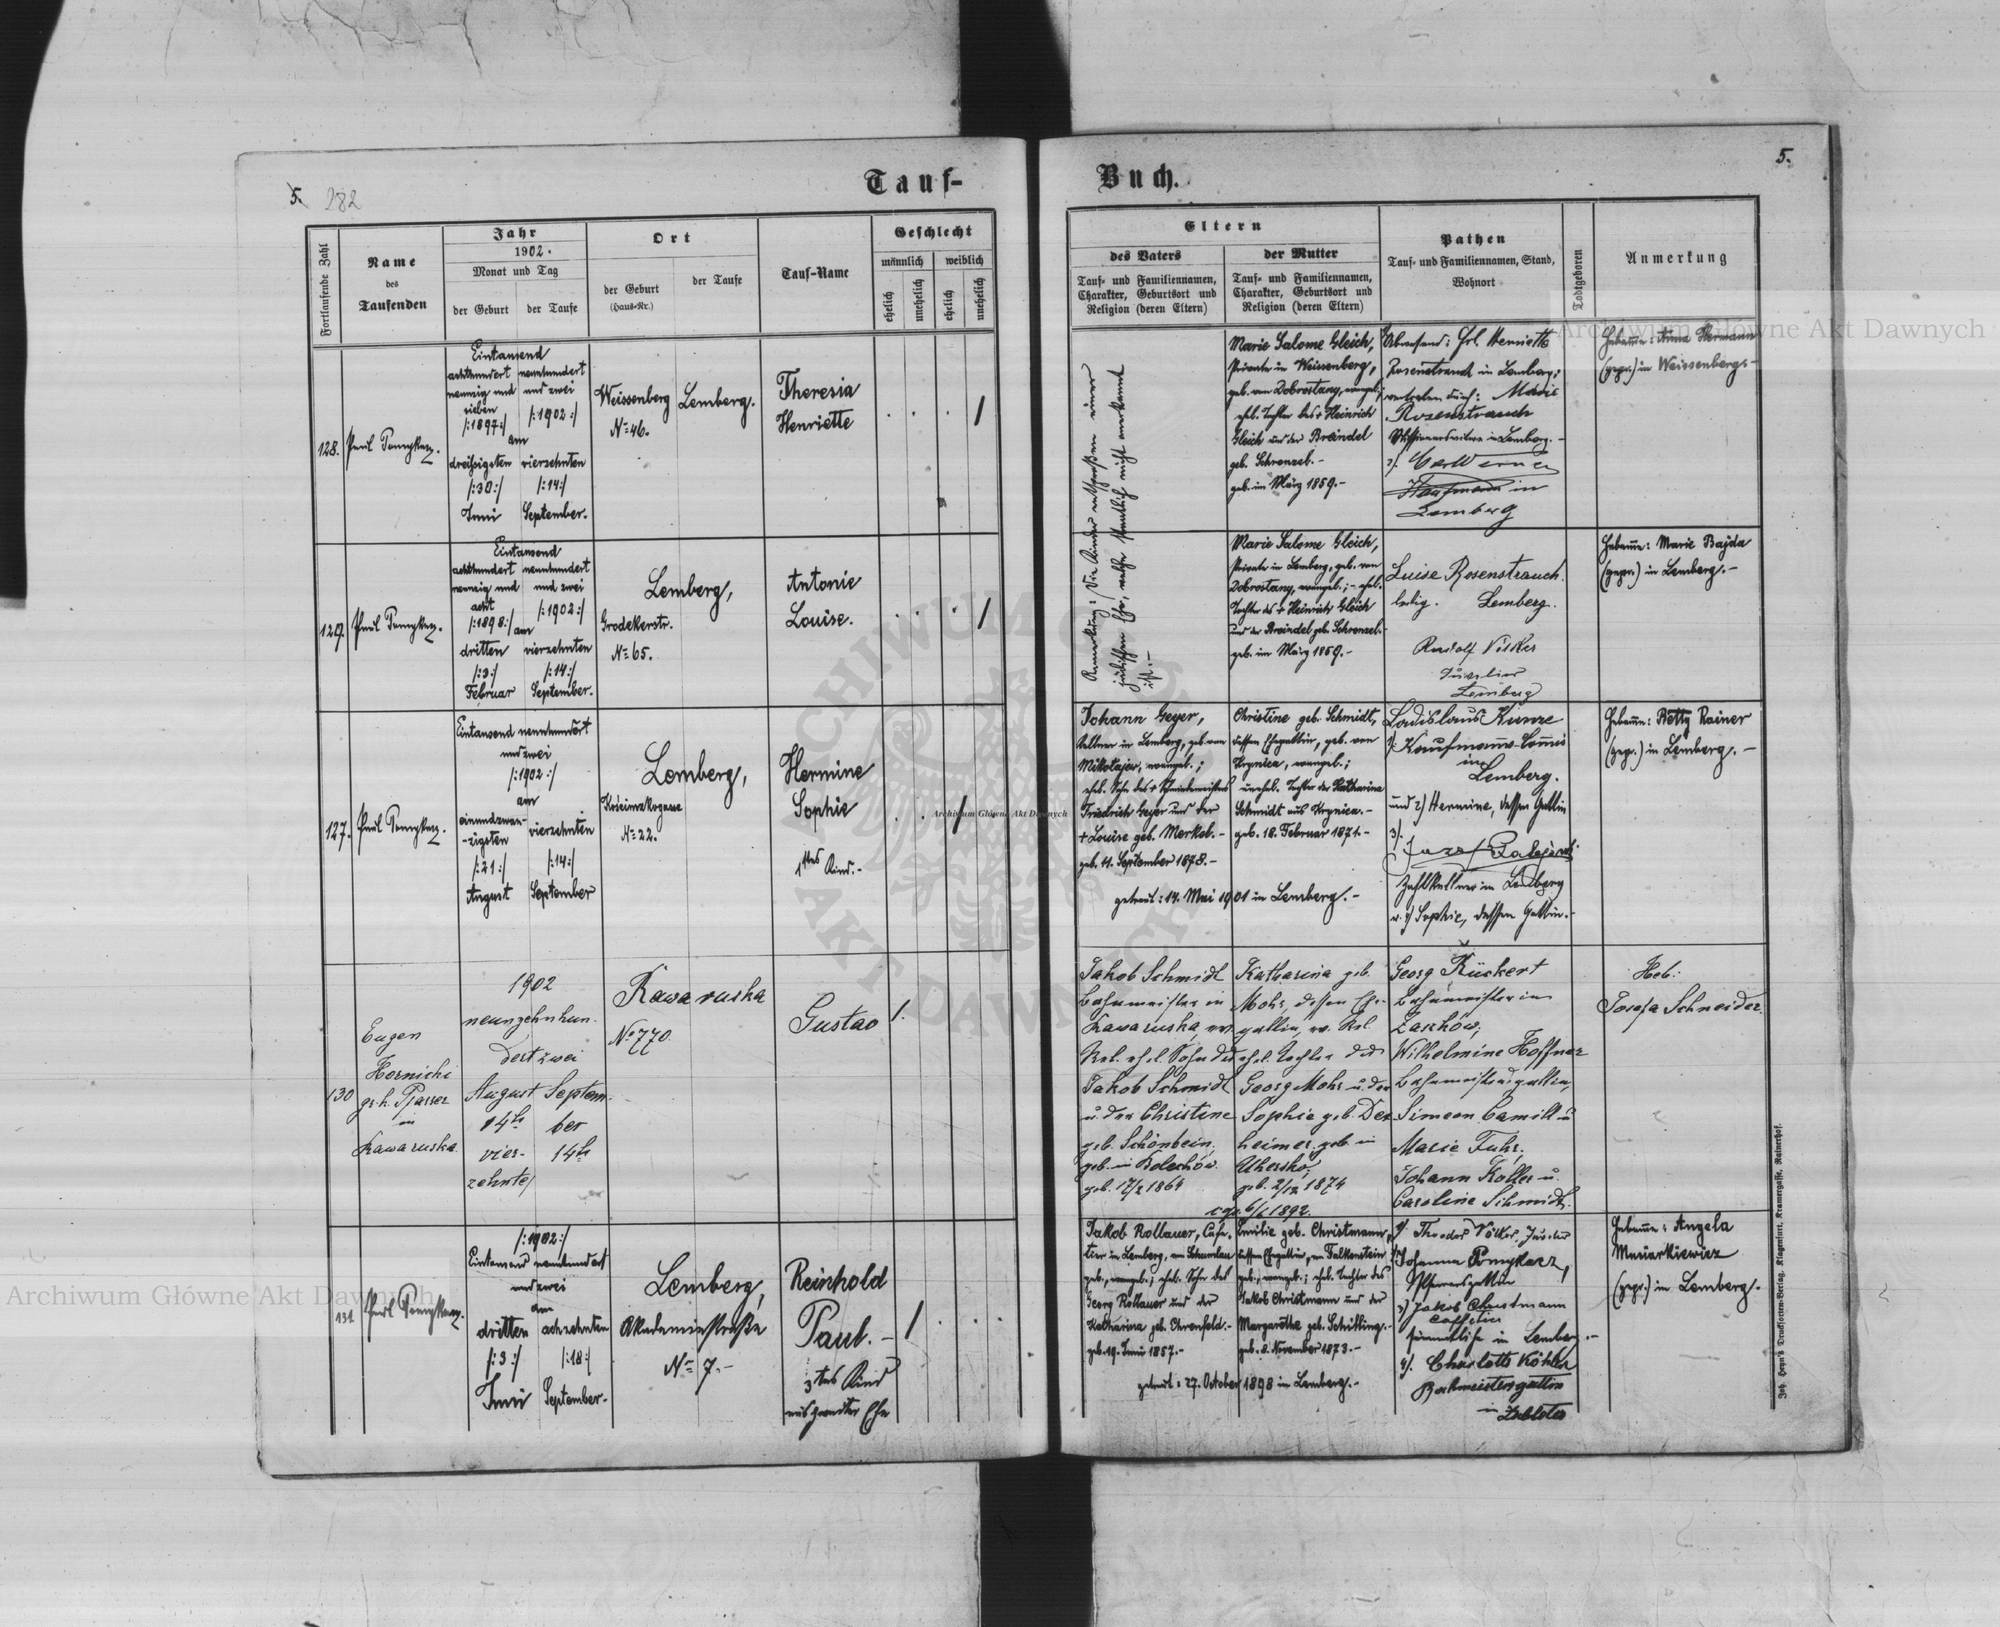 5. 282
Tauf-
Buch.
5.
Fortlaufende Zahl
Name
des
Taufenden
Jahr
1902.
Monat und Tag
der Geburt
der Taufe
Ort
der Geburt
(Haus-Nr.)
der Taufe
Tauf-Name
Geschlecht
männlich
weiblich
ehelich
unehelich
ehelich
unehelich
Eltern
des Vaters
Tauf- und Familiennamen,
Charakter, Geburtsort und
Religion (deren Eltern)
der Mutter
Tauf- und Familiennamen,
Charakter, Geburtsort und
Religion (deren Eltern)
Pathen
Tauf- und Familiennamen, Stand,
Wohnort
Todtgeboren
Anmerkung
128.
Eintausend
achthundert
neunzig und
sieben
/:1897:/
am
dreißigsten
/:30:/
Juni
neunhundert
und zwei
/:1902:/
vierzehnten
/:14:/
September.
Weissenberg
№ 46.
Lemberg.
Theresia
Henriette
Marie Salome Gleich,
Private in Weissenberg,
geb. von Dobrostany, evangel.;
ehel. Tochter des + Heinrich
Gleich und der Breindel
geb. Schrenzel.-
geb. im März 1859.-
Rosenstrauch in Lemberg;
vertreten durch: Marie
Rosenstrauch
Kaufmann in
Lemberg
Hebamme: Anna Hermann
(gepr.) in Weissenberg.-
129.
Eintausend
achthundert
neunzig und
acht
/:1898:/ am
dritten
/:3:/
Februar
neunhundert
und zwei
/:1902:/
vierzehnten
/:14:/
September.
Lemberg,
Grodekerstr.
№ 65.
Antonie
Louise.
Marie Salome Gleich,
Private in Lemberg, geb. von
Dobrostany, evangel.; - ehel.
Tochter des + Heinrich Gleich
und der Breindel geb. Schrenzel.-
geb. im März 1859.-
Luise Rosenstrauch.
ledig. Lemberg.
Rudolf Völker
Juwelier
Lemberg
Hebamme: Marie Bajda
(gepr.) in Lemberg.-
127.
Eintausend neunhundert
und zwei
/:1902:/
am
einundzwan-
-zigsten
/:21:/
August
vierzehnten
/:14:/
September
Lemberg,
№ 22.
Hermine
Sophie
1tes Kind.-
Johann Geyer,
Kellner in Lemberg, geb. von
Mikołajow, evangel.;
Friedrich Geyer und der
+ Louise geb. Merkel.-
geb. 11. September 1878.-
Christine geb. Schmidt,
dessen Ehegattin, geb. von
Krynica, evangel.;
unehel. Tochter der Katharina
Schmidt aus Krynica.-
geb. 18. Februar 1871.-
getraut: 14. Mai 1901 in Lemberg.-
Ladislaus Kunze
1) Kaufmanns-Commis
in
Lemberg.
und 2) Hermine, dessen Gattin
3).
Zahlkellner in Lemberg
u. 4) Sophie, dessen Gattin.-
Hebamme: Betty Rainer
(gepr.) in Lemberg.-
130
Eugen
Hornicki
gr.k. Pfarrer
in
Rawaruska.
1902
neunzehnhun-
dert zwei
August
14te
vier-
zehnte/
Septem-
ber
14te
Rawaruska
№ 770.
Gustav
1.
Jakob Schmidt
Bahnmeister in
Rawaruska, ev.
Ref. ehel. Sohn des
Jakob Schmidt
u. der Christine
geb. Schönbein,
geb. in Bolechów.
geb. 17/2 1864
Katharina geb.
Mohr, dessen Ehe-
gattin, ev. Ref.
ehel. Tochter des
Georg Mohr u. der
Sophie geb. Dex-
heimer, geb. in
Uhersko,
geb. 2/12 1874
Georg Rückert
Bahnmeister in
Wilhelmine Hoffner
Bahnmeistersgattin
Simeon Camill u
Marie Fuhr,
Johann Koller u.
Caroline Schmidt.
Heb:
Josefa Schneider
131.
/:1902:/
Eintausend neunhundert
und zwei
am
dritten
/:3:/
Juni
achzehnten
/:18:/
September.
Lemberg,
Akademiestraße
№ 7.-
Reinhold
Paul.-
3tes Kind
aus zweiter Ehe
Jakob Rollauer,
geb., evangel.; ehel. Sohn des
Georg Rollauer und der
Katharina geb. Ehrenfeld.-
geb. 19. Juni 1857.-
Emilie geb. Christmann,
dessen Ehegattin, von Falkenstein
geb., evangel.; ehel. Tochter des
Jakob Christmann und der
Margarethe geb. Schilling.-
geb. 2. November 1873.-
getraut: 27. October 1898 in Lemberg.-
1) Theodor Völker, Juvelier
2) Johanna Pomykacz,
Pfarrersgattin
3) Jakob Christmann
Caffetier
sämmtliche in Lemberg.-
4). Charlotte Köhler
Bahmeistersgattin
Hebamme: Angela
Musiarkiewicz
(gepr.) in Lemberg.-
Joh. Heyn's Drucksorten-Verlag, Klagenfurt, Kramergasse, Rainerhof.
Archiwum Główne Akt Dawnych
Archiwum Główne Akt Dawnych
Archiwum Główne Akt Dawnych